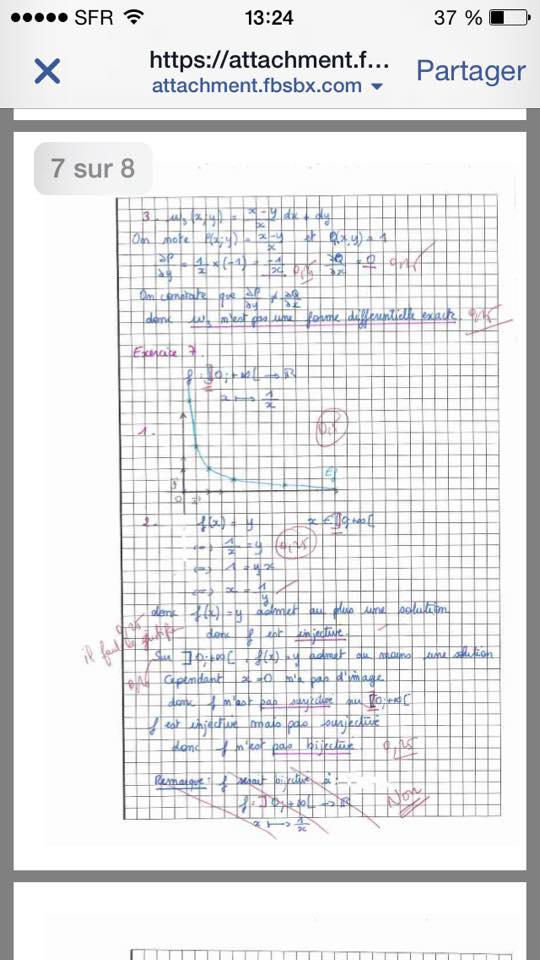 SFR 13:24 37 %
https://attachment.f...
attachment.fbsbx.com
Partager
7 sur 8
3. ω₃(x;y) = x-y/x dx + dy
On note P(x;y) = x-y/x et Q(x;y) = 1
∂P/∂y = 1/x × (-1) = -1/x ∂Q/∂x = 0
On constate que ∂P/∂y ≠ ∂Q/∂x
donc ω₃ n'est pas une forme différentielle exacte
Exercice 7.
f : ]0;+∞[ → ℝ
x ↦ 1/x
1.
0,5
0
2. f(x) = y x ∈ ]0;+∞[
⇔ 1/x = y 0,25
⇔ 1 = yx
⇔ x = 1/y
donc f(x) = y admet au plus une solution
donc f est injective.
il faut le justifier
Sur ]0;+∞[, f(x) = y admet au moins une solution
Cependant x=0 n'a pas d'image
donc f n'est pas surjective sur [0;+∞[
f est injective mais pas surjective
donc f n'est pas bijective 0,25
Remarque : f serait bijective si :
f : ]0;+∞[ → ℝ
x ↦ 1/x
Non